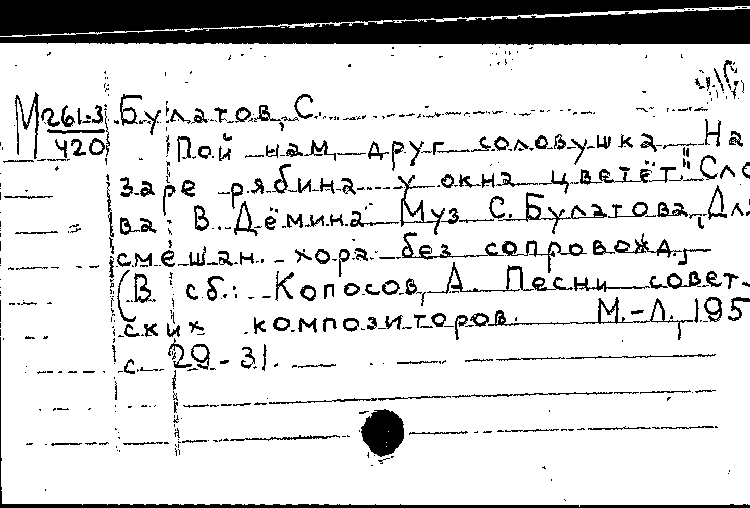 М 261-3 Булатов, С.
420 Пой нам, друг соловушка, "На
заре рябина у окна цветёт." Сло
ва: В. Дёмина Муз С. Булатова, Дл
смешан. хора без сопровожд,
(В сб.: Копосов, А. Песни совет-
ских композиторов. М.-Л., 195
с. 29-31.